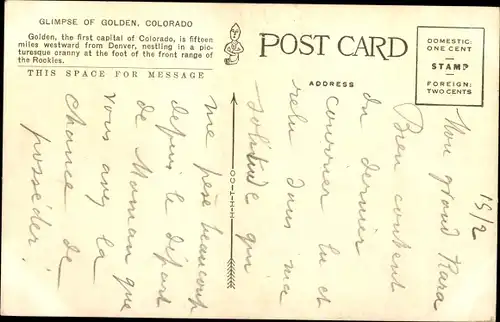 GLIMPSE OF GOLDEN, COLORADO
Golden, the first capital of Colorado, is fifteen
miles westward from Denver, nestling in a pic-
turesque cranny at the foot of the front range of
the Rockies.
THIS SPACE FOR MESSAGE
POST CARD
ADDRESS
DOMESTIC:
ONE CENT
STAMP
FOREIGN:
TWO CENTS
H-H-T-CO
15/2
Mon grand Kara
Bien content
du dernier
courrier lu et
relu dans ma
solitude qui
me pèse beaucoup
depuis le départ
de Maman que
vous avez la
chance de
posséder!